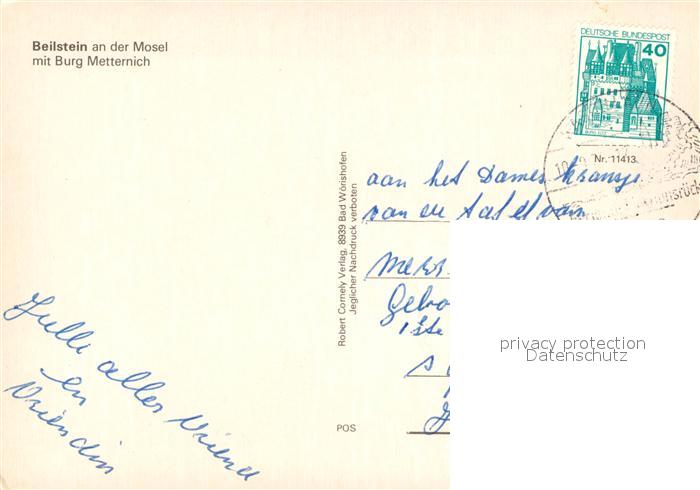 Beilstein an der Mosel
mit Burg Metternich
DEUTSCHE BUNDESPOST
40
Nr. 11413
Robert Cornely Verlag, 8939 Bad Wörishofen
Jeglicher Nachdruck verboten
aan het Dames kransje
van de tafel van
Gebo
Iste
Julli aller Vriend
en
Vriendin
POS
privacy protection
Datenschutz